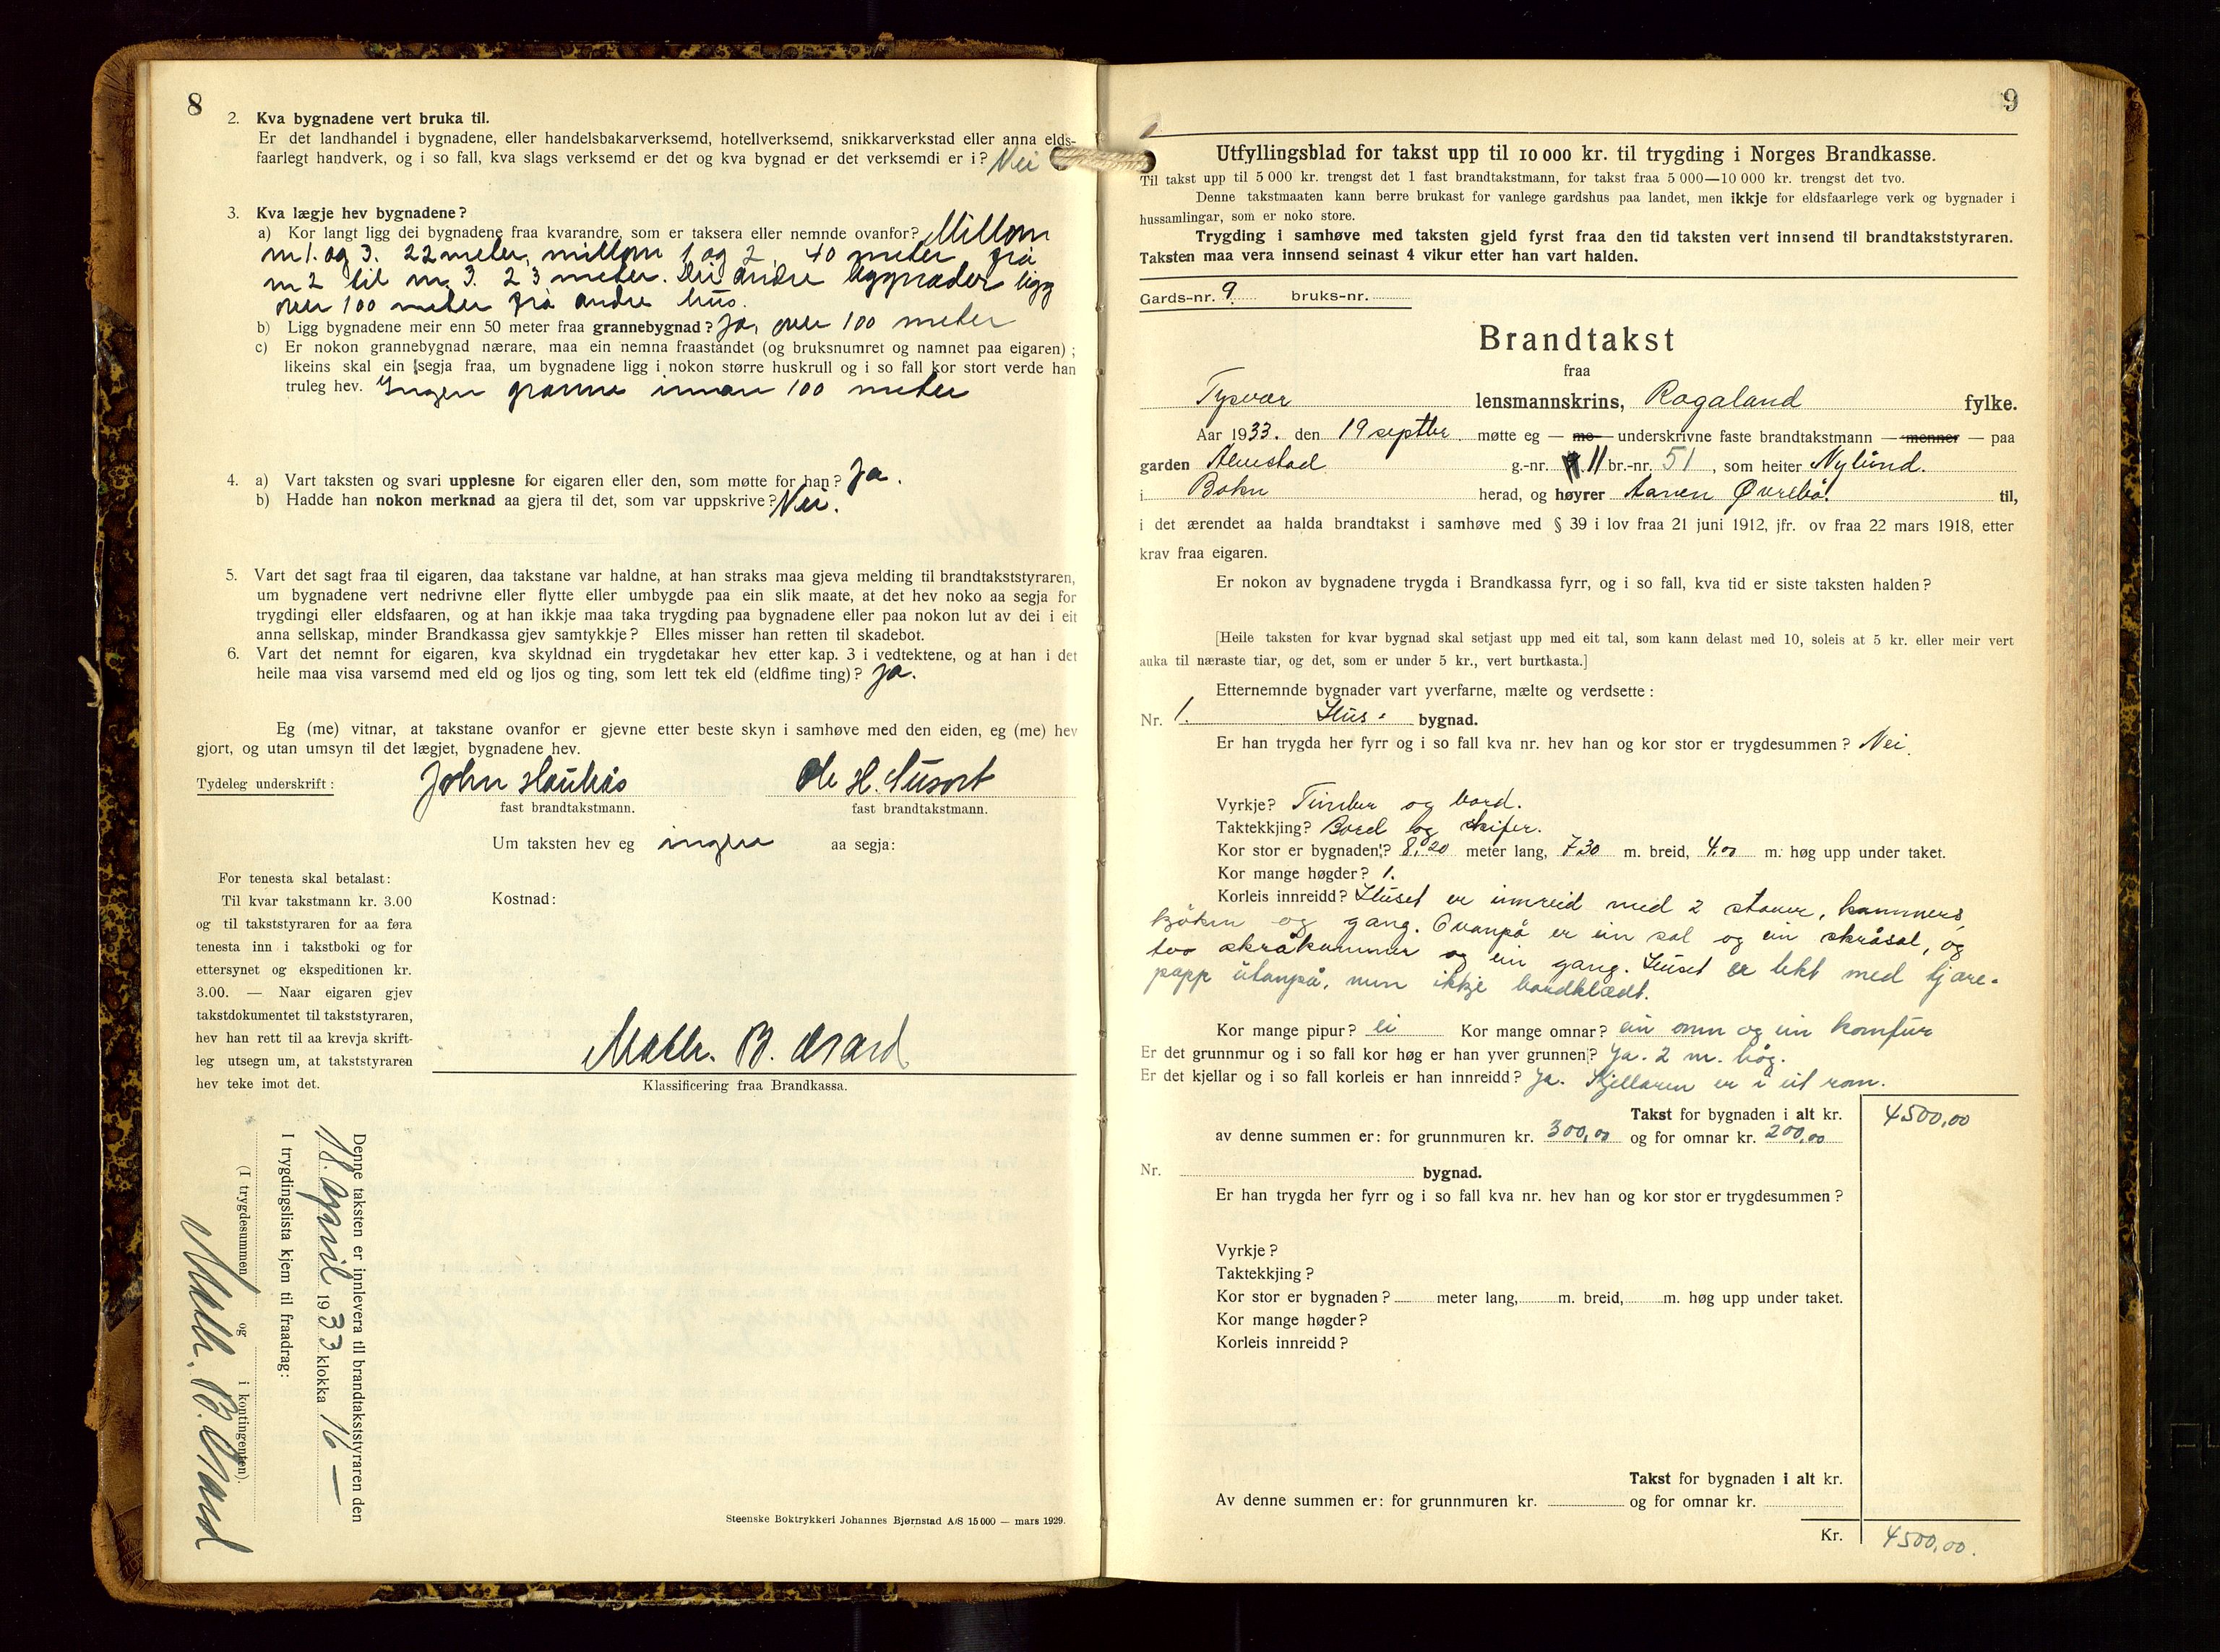 8
2. Kva bygnadene vert bruka til.
Er det landhandel i bygnadene, eller handelsbakarverksemd, hotellverksemd, snikkarverkstad eller anna elds-
faarlegt handverk, og i so fall, kva slags verksemd er det og kva bygnad er det verksemdi er i? Nei
3. Kva lægje hev bygnadene?
a) Kor langt ligg dei bygnadene fraa kvarandre, som er taksera eller nemnde ovanfor? Millom
nr 1. og 3. 22 meter, millom 1 og 2, 40 meter frå
nr 2 til nr. 3. 23 meter. Dei andre bygnader ligg
over 100 meter frå andre hus.
b) Ligg bygnadene meir enn 50 meter fraa grannebygnad? Ja, over 100 meter
c) Er nokon grannebygnad nærare, maa ein nemna fraastandet (og bruksnumret og namnet paa eigaren) ;
likeins skal ein segja fraa, um bygnadene ligg i nokon større huskrull og i so fall kor stort verde han
truleg hev. Ingen granne innan 100 meter
4. a) Vart taksten og svari upplesne for eigaren eller den, som møtte for han? Ja.
b) Hadde han nokon merknad aa gjera til det, som var uppskrive? Nei.
5. Vart det sagt fraa til eigaren, daa takstane var haldne, at han straks maa gjeva melding til brandtakststyraren,
um bygnadene vert nedrivne eller flytte eller umbygde paa ein slik maate, at det hev noko aa segja for
trygdingi eller eldsfaaren, og at han ikkje maa taka trygding paa bygnadene eller paa nokon lut av dei i eit
anna sellskap, minder Brandkassa gjev samtykkje? Elles misser han retten til skadebot.
6. Vart det nemnt for eigaren, kva skyldnad ein trygdetakar hev etter kap. 3 i vedtektene, og at han i det
heile maa visa varsemd med eld og ljos og ting, som lett tek eld (eldfime ting)? Ja.
Eg (me) vitnar, at takstane ovanfor er gjevne etter beste skyn i samhøve med den eiden, eg (me) hev
gjort, og utan umsyn til det lægjet, bygnadene hev.
Tydeleg underskrift: John Haukås Ole H.
fast brandtakstmann. fast brandtakstmann.
Um taksten hev eg ingen aa segja:
For tenesta skal betalast:
Til kvar takstmann kr. 3.00
og til takststyraren for aa føra
tenesta inn i takstboki og for
ettersynet og ekspeditionen kr.
3.00. — Naar eigaren gjev
takstdokumentet til takststyraren,
hev han rett til aa krevja skrift-
leg utsegn um, at takststyraren
hev teke imot det.
Kostnad:
Math. B. Arad
Klassificering fraa Brandkassa.
Denne taksten er innlevera til brandtakststyraren den
18. april 1933 klokka 16 —
I trygdingslista kjem til fraadrag:
(I trygdesummen og i kontingenten).
Math. B. Arad
Steenske Boktrykkeri Johannes Bjørnstad A/S 15 000 — mars 1929.
9
Utfyllingsblad for takst upp til 10 000 kr. til trygding i Norges Brandkasse.
Til takst upp til 5 000 kr. trengst det 1 fast brandtakstmann, for takst fraa 5 000—10 000 kr. trengst det tvo.
Denne takstmaaten kann berre brukast for vanlege gardshus paa landet, men ikkje for eldsfaarlege verk og bygnader i
hussamlingar, som er noko store.
Trygding i samhøve med taksten gjeld fyrst fraa den tid taksten vert innsend til brandtakststyraren.
Taksten maa vera innsend seinast 4 vikur etter han vart halden.
Gards-nr. 9. bruks-nr.
Brandtakst
fraa
Tysvær lensmannskrins, Rogaland fylke.
Aar 1933. den 19 septbr. møtte eg — me — underskrivne faste brandtakstmann — menner — paa
garden Alvestad g.-nr. 11 br.-nr. 51, som heiter Nylund.
i Bokn herad, og høyrer Aanen Øvrebø. til,
i det ærendet aa halda brandtakst i samhøve med § 39 i lov fraa 21 juni 1912, jfr. ov fraa 22 mars 1918, etter
krav fraa eigaren.
Er nokon av bygnadene trygda i Brandkassa fyrr, og i so fall, kva tid er siste taksten halden?
[Heile taksten for kvar bygnad skal setjast upp med eit tal, som kann delast med 10, soleis at 5 kr. eller meir vert
auka til næraste tiar, og det, som er under 5 kr., vert burtkasta.]
Etternemnde bygnader vart yverfarne, mælte og verdsette :
Nr. 1. Hus- bygnad.
Er han trygda her fyrr og i so fall kva nr. hev han og kor stor er trygdesummen? Nei.
Vyrkje? Timber og bord.
Taktekkjing? Bord og skifer.
Kor stor er bygnaden? 8,20 meter lang, 7,30 m. breid, 4,00 m. høg upp under taket.
Kor mange høgder? 1.
Korleis innreidd? Huset er innreid med 2 stover, kammers,
kjøken og gang. Ovanpå er ein sal og ein skråsal, og
too skråkammer og ein gang. Huset er tekt med tjære-
papp utanpå, men ikkje bordklædt.
Kor mange pipur? ei Kor mange omnar? ein omn og ein komfur
Er det grunnmur og i so fall kor høg er han yver grunnen? Ja. 2 m. høg.
Er det kjellar og i so fall korleis er han innreidd? Ja. Kjellaren er i eit rom.
Takst for bygnaden i alt kr. 4500,00
av denne summen er: for grunnmuren kr. 300,00 og for omnar kr. 200,00
Nr. bygnad.
Er han trygda her fyrr og i so fall kva nr. hev han og kor stor er trygdesummen ?
Vyrkje ?
Taktekkjing ?
Kor stor er bygnaden ? meter lang, m. breid, m. høg upp under taket.
Kor mange høgder?
Korleis innreidd ?
Takst for bygnaden i alt kr.
Av denne summen er: for grunnmuren kr. og for omnar kr.
Kr. 4500,00.